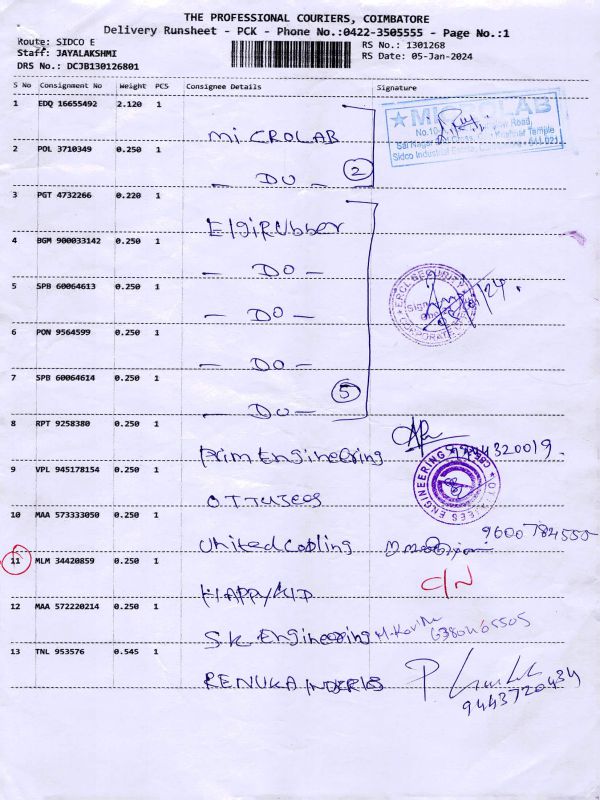 THE PROFESSIONAL COURIERS, COIMBATORE
Delivery Runsheet - PCK - Phone No.:0422-3505555 - Page No.:1
Route: SIDCO E
Staff: JAYALAKSHMI
DRS No.: DCJB130126801
RS No.: 1301268
RS Date: 05-Jan-2024
S No Consignment No Weight PCS Consignee Details Signature
1 EDQ 16655492 2.120 1
MiCROLAB
MICROLAB
Sidco Industrial
2 POL 3710349 0.250 1
— DO —
2
3 PGT 4732266 0.220 1
ElgiRubber
4 BGM 900033142 0.250 1
— DO —
5 SPB 60064613 0.250 1
— DO —
ERCL SECURITY
CORPORATE
6 PON 9564599 0.250 1
— DO —
7 SPB 60064614 0.250 1
— DO —
5
8 RPT 9258380 0.250 1
Prim Engineering
9 VPL 945178154 0.250 1
O.T.JUSEES
ENGINEERING
10 MAA 573333050 0.250 1
United Cooling
9600784550
11 MLM 34420859 0.250 1
C/N
12 MAA 572220214 0.250 1
S.K. Engineering
13 TNL 953576 0.545 1
RENUKA
9443720434